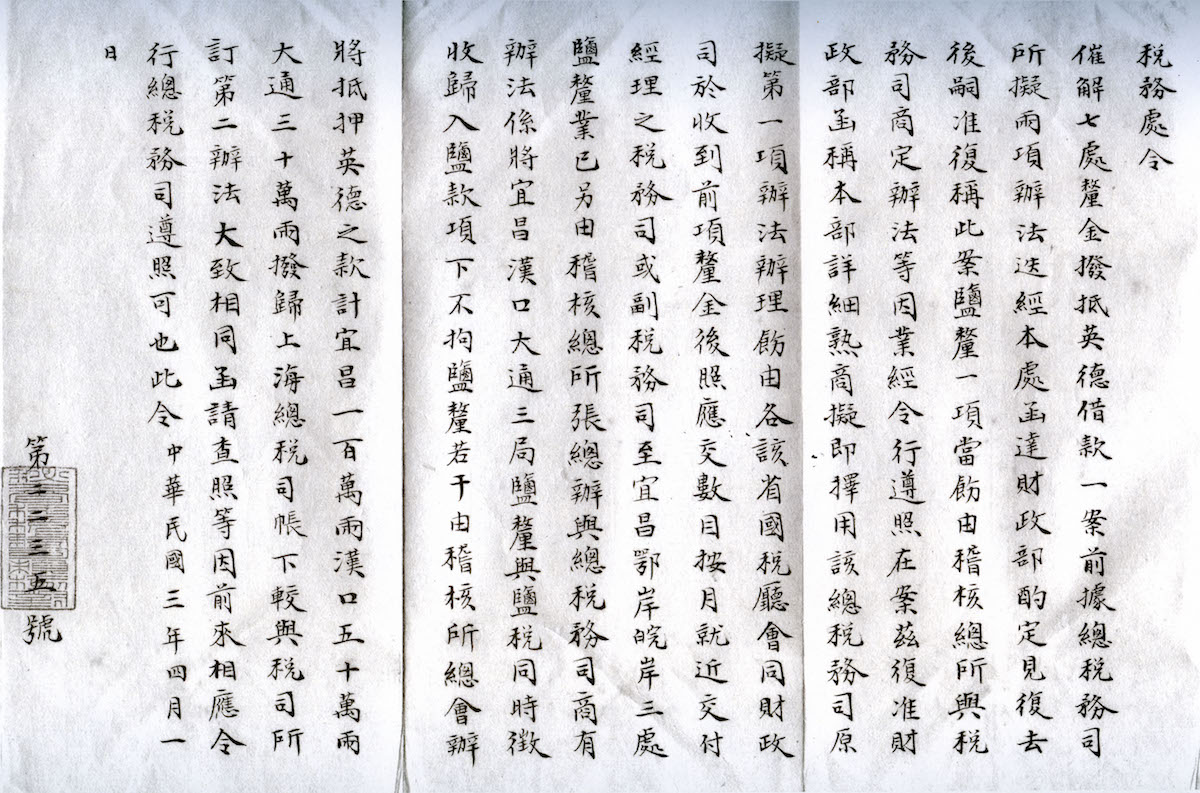 税務處令
催解七處釐金撥抵英德借款一案前據總税務司
所擬兩項辦法迭經本處函達財政部酌定見復去
後嗣准復稱此案鹽釐一項當飭由稽核總所與税
務司商定辦法等因業經令行遵照在案茲復准財
政部函稱本部詳細熟商擬即擇用該總税務司原
擬第一項辦法辦理飭由各該省國税廳會同財政
司於收到前項釐金後照應交數目按月就近交付
經理之税務司或副税務司至宜昌鄂岸皖岸三處
鹽釐業已另由稽核總所張總辦與總税務司商有
辦法係將宜昌漢口大通三局鹽釐與鹽税同時徵
收歸入鹽款項下不拘鹽釐若干由稽核所總會辦
將抵押英德之款計宜昌一百萬兩漢口五十萬兩
大通三十萬兩撥歸上海總税司帳下較與税司所
訂第二辦法大致相同函請查照等因前來相應令
行總税務司遵照可也此令中華民國三年四月一
日
第二二三五號